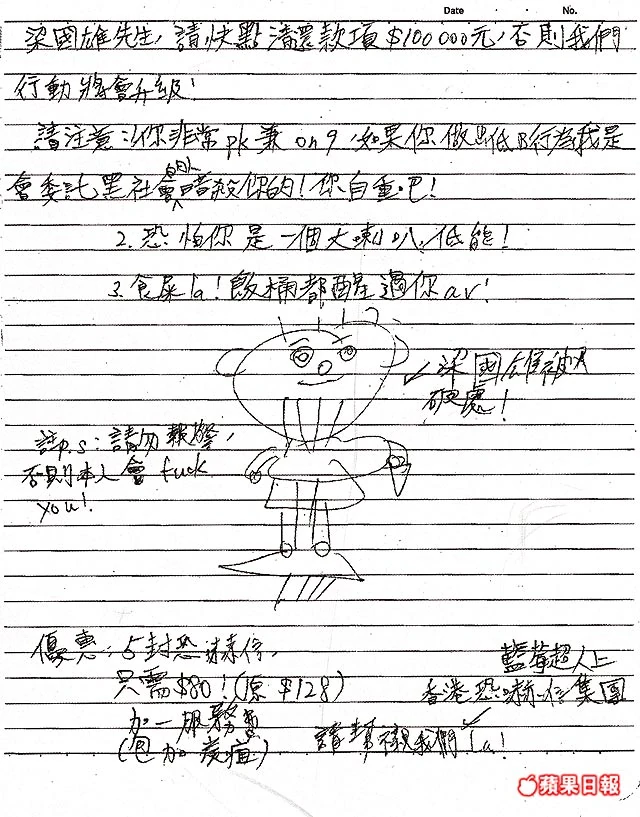 Date . . No.
梁國雄先生，請快點清還款項$100000元，否則我們
行動將會升級！
請注意：1.你非常pk兼on9，如果你做出低B行為我是
會委託黑社會的人暗殺你的！你自重吧！
2.恐怕你是一個大喇叭，低能！
3.食屎la！飯桶都醒過你ar！
梁國雄被
硬處！
註p.s：請勿報警，
否則本人會fuck
you！
優惠：5封恐嚇信，
只需$80！(原$128)
加一服務
(包加炭疽)
藍莓超人上
香港恐嚇信集團
請幫襯我們la！
蘋果日報